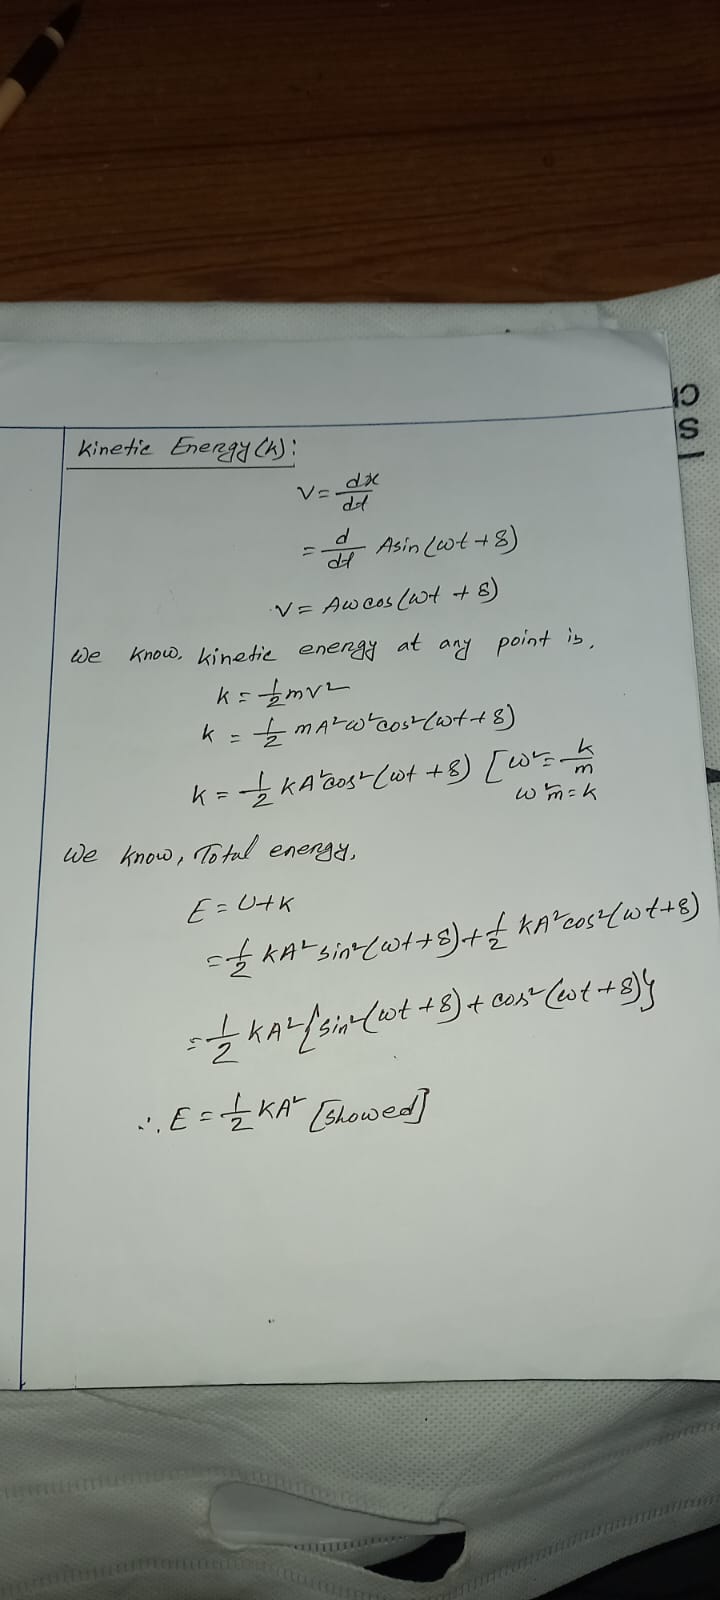 Kinetic Energy(k):
V = dx/dt
= d/dt Asin(ωt+δ)
V = Aωcos(ωt+δ)
We know, kinetic energy at any point is,
k = 1/2 mv²
k = 1/2 mA²ω²cos²(ωt+δ)
k = 1/2 kA²cos²(ωt+δ) [ω² = k/m
ω²m = k
We know, Total energy,
E = U+K
= 1/2 kA² sin²(ωt+δ) + 1/2 kA²cos²(ωt+δ)
= 1/2 kA²{sin²(ωt+δ) + cos²(ωt+δ)}
∴ E = 1/2 kA² [Showed]
S